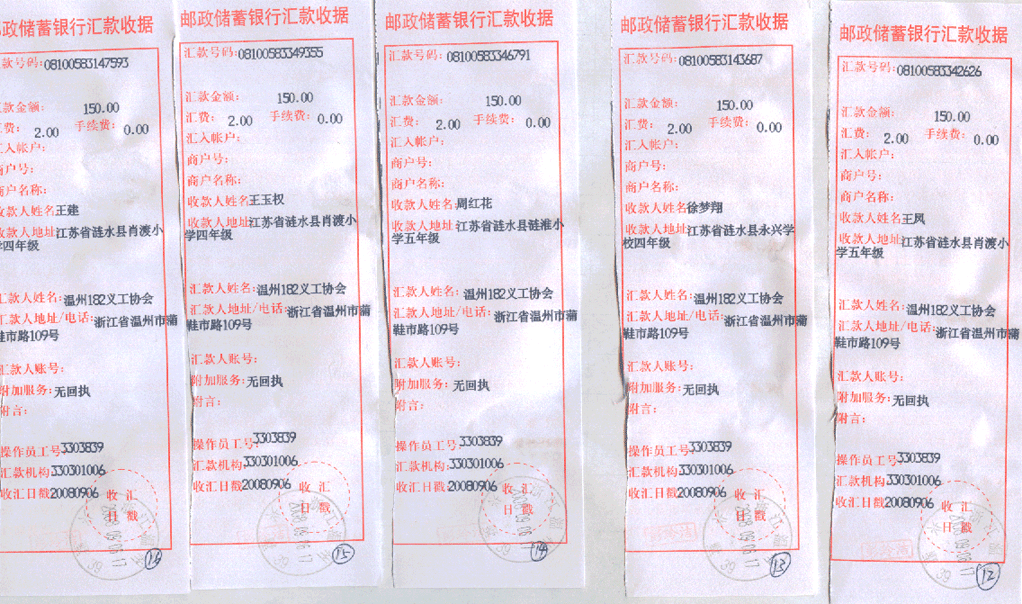 邮政储蓄银行汇款收据
汇款号码:08100583147593
汇款金额: 150.00
汇费: 2.00 手续费: 0.00
汇入帐户:
商户号:
商户名称:
收款人姓名王建
收款人地址江苏省涟水县肖渡小
学四年级
汇款人姓名:温州182义工协会
汇款人地址/电话:浙江省温州市蒲
鞋市路109号
汇款人账号:
附加服务:无回执
附言:
操作员工号3303839
汇款机构330301006
收汇日戳20080906
收汇
日戳
16
邮政储蓄银行汇款收据
汇款号码:08100583349355
汇款金额: 150.00
汇费: 2.00 手续费: 0.00
汇入帐户:
商户号:
商户名称:
收款人姓名王玉权
收款人地址江苏省涟水县肖渡小
学四年级
汇款人姓名:温州182义工协会
汇款人地址/电话:浙江省温州市蒲
鞋市路109号
汇款人账号:
附加服务:无回执
附言:
操作员工号3303839
汇款机构330301006
收汇日戳20080906
收汇
日戳
15
邮政储蓄银行汇款收据
汇款号码:08100583346791
汇款金额: 150.00
汇费: 2.00 手续费: 0.00
汇入帐户:
商户号:
商户名称:
收款人姓名周红花
收款人地址江苏省涟水县涟淮小
学五年级
汇款人姓名:温州182义工协会
汇款人地址/电话:浙江省温州市蒲
鞋市路109号
汇款人账号:
附加服务:无回执
附言:
操作员工号3303839
汇款机构330301006
收汇日戳20080906
收汇
日戳
14
邮政储蓄银行汇款收据
汇款号码:08100583143687
汇款金额: 150.00
汇费: 2.00 手续费: 0.00
汇入帐户:
商户号:
商户名称:
收款人姓名徐梦翔
收款人地址江苏省涟水县永兴学
校四年级
汇款人姓名:温州182义工协会
汇款人地址/电话:浙江省温州市蒲
鞋市路109号
汇款人账号:
附加服务:无回执
附言:
操作员工号3303839
汇款机构330301006
收汇日戳20080906
收汇
日戳
13
邮政储蓄银行汇款收据
汇款号码:08100583342626
汇款金额: 150.00
汇费: 2.00 手续费: 0.00
汇入帐户:
商户号:
商户名称:
收款人姓名王凤
收款人地址江苏省涟水县肖渡小
学五年级
汇款人姓名:温州182义工协会
汇款人地址/电话:浙江省温州市蒲
鞋市路109号
汇款人账号:
附加服务:无回执
附言:
操作员工号3303839
汇款机构330301006
收汇日戳20080906
收汇
日戳
12